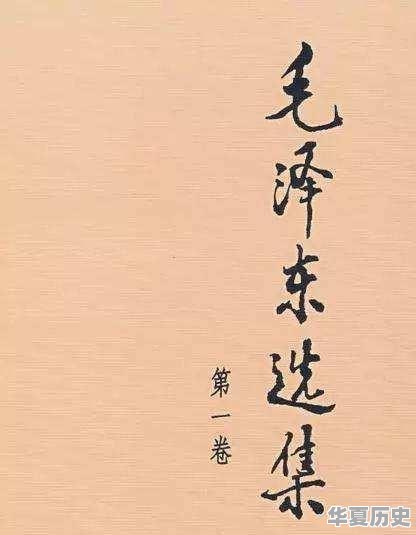 毛泽东选集
第一卷
华夏历史